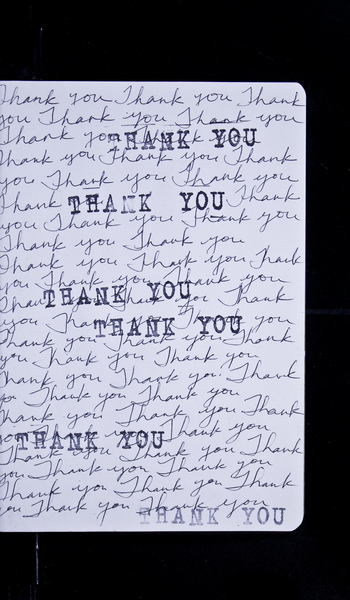 Thank you Thank you Thank
you Thank you Thank you
Thank you THANK YOU
Thank you Thank you Thank
you Thank you Thank you
Thank THANK YOU Thank
you Thank you Thank you
Thank you Thank you
Thank you Thank you Thank
you Thank you Thank you
THANK YOU Thank
you THANK YOU you
Thank you Thank you Thank
you Thank you Thank you
Thank you Thank you Thank
you Thank you Thank you
Thank you Thank you Thank
THANK YOU Thank you
Thank you Thank you Thank
you Thank you Thank you
Thank you Thank you Thank
you Thank you Thank you
THANK YOU